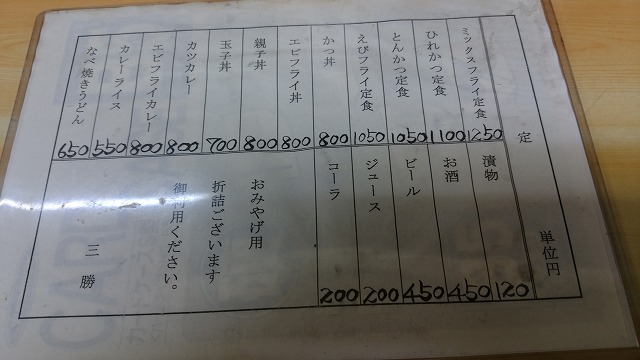 定
単位円
ミックスフライ定食 1250
ひれかつ定食 1100
とんかつ定食 1050
えびフライ定食 1050
かつ丼 800
エビフライ丼 800
親子丼 800
玉子丼 700
カツカレー 800
エビフライカレー 800
カレーライス 550
なべ焼きうどん 650
漬物 120
お酒 450
ビール 450
ジュース 200
コーラ 200
おみやげ用
折詰ございます
御利用ください。
三勝